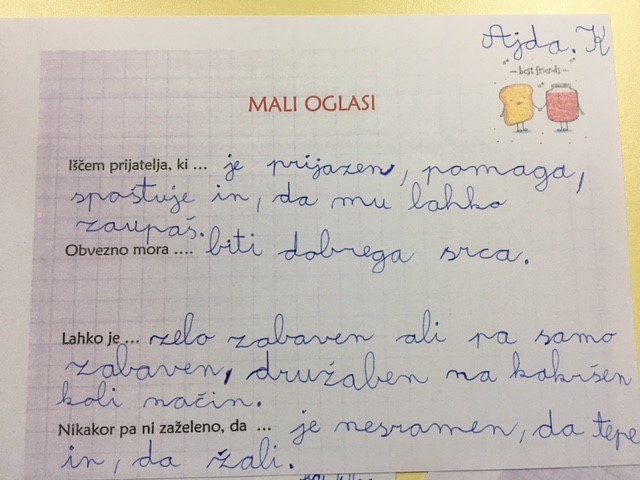 Ajda. K
best friends
MALI OGLASI
Iščem prijatelja, ki ... je prijazen, pomaga,
spoštuje in, da mu lahko
zaupaš.
Obvezno mora .... biti dobrega srca.
Lahko je ... zelo zabaven ali pa samo
zabaven, družaben na kakršen
koli način.
Nikakor pa ni zaželeno, da ... je nesramen, da tepe
in, da žali.